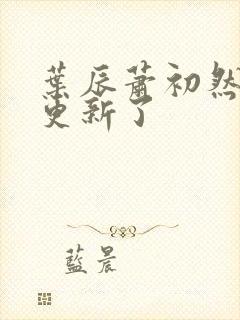 葉辰蕭初然
更新了
藍晨